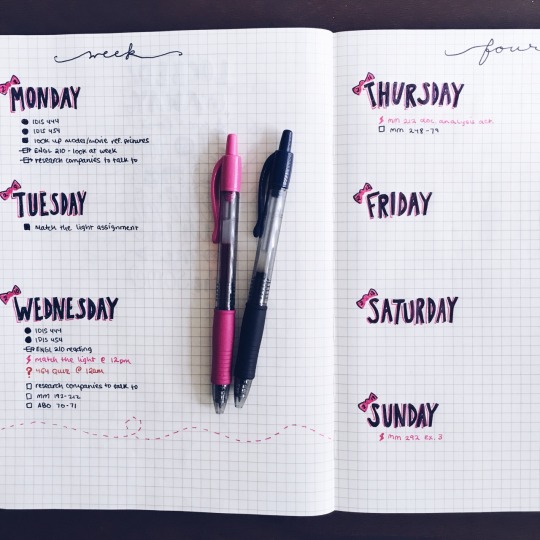 week
four
MONDAY
IDIS 444
IDIS 454
look up models/movie ref. pictures
ENGL 210 - look at week
research companies to talk to
TUESDAY
Match the light assignment
WEDNESDAY
IDIS 444
IDIS 454
ENGL 210 reading
match the light @ 12pm
464 Quiz @ 12am
research companies to talk to
MM 192-212
ABO 70-71
THURSDAY
MM 212 analysis
MM 248-79
FRIDAY
SATURDAY
SUNDAY
MM 292 ex. 3